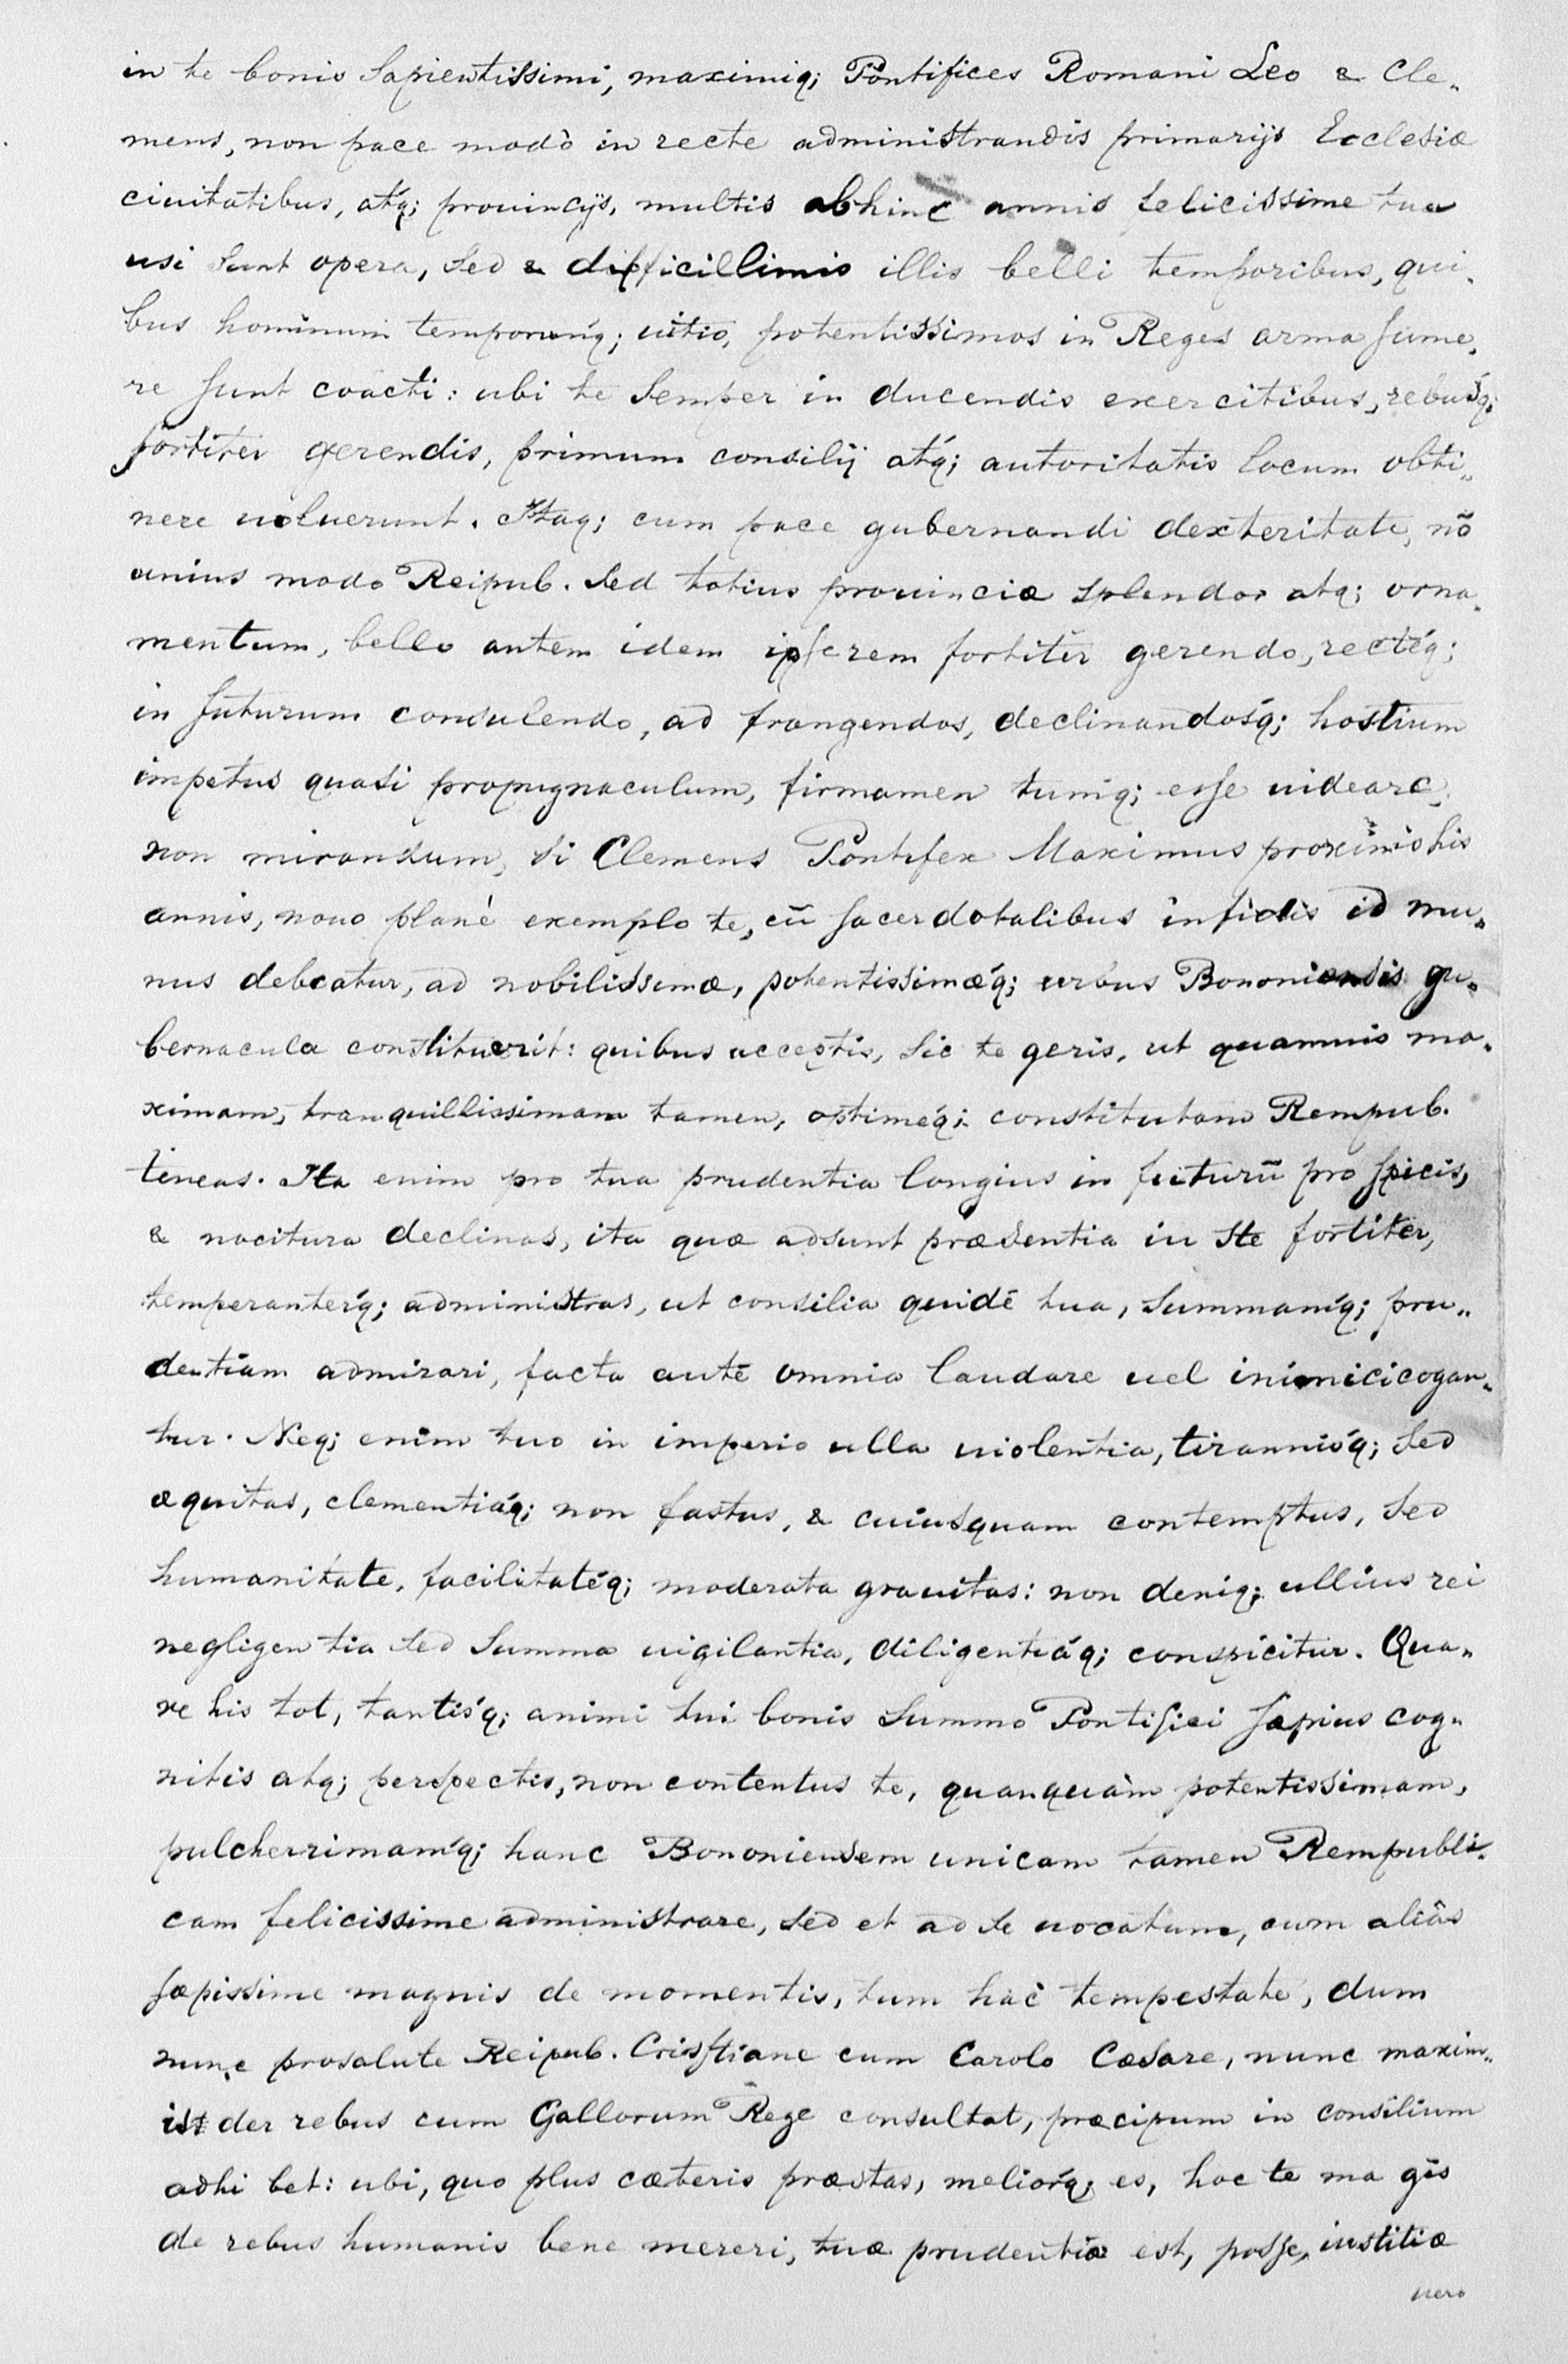 in te bonis sapientissimi, maximiq; Pontifices Romani Leo & Cle„
mens, non pace modò in recte administrandis primarijs Ecclesiæ
ciuitatibus, atq́; prouincijs, multis abhinc annis felicissime tua
usi sunt opera, sed & difficillimis illis belli temporibus, qui„
bus hominum temporumq́; uitio, potentissimos in Reges arma sume„
re sunt coacti: ubi te semper in ducendis exercitibus, rebusq́;
fortiter gerendis, primum consilij atq́; autoritatis locum obti„
nere uoluerunt. Itaq; cum pace gubernandi dexteritate, nõ
unius modo Reipub. sed totius prouinciæ splendor atq; orna„
mentum, bello autem idem ipse rem fortiter gerendo, rectéq;
in futurum consulendo, ad frangendos, declinandosq́; hostium
impetus quasi propugnaculum, firmamen tumq; esse uideare,
non mirandum, si Clemens Pontifex Maximus proximis his
annis, nouo planè exemplo te, cũ sacerdotalibus infulis id mu„
nus debeatur, ad nobilissimæ, potentissimæq́; urbus Bononiensis gu„
bernacula constituerit: quibus acceptis, sic te geris, ut quamuis ma„
ximam, tranquillissimam tamen, optimeq́; constitutam Rempub.
teneas. Ita enim pro tua prudentia longius in futurũ pro spicis,
& nocitura declinas, ita quæ adsunt præsentia iu ste fortiter,
temperanterq́; administras, ut consilia quidẽ tua, summamq́; pru„
dentiam admirari, facta autẽ omnia laudare uel inimicicogan„
tur. Neq; enim tuo in imperio ulla uiolentia, tirannisq́; sed
æquitas, clementiaq́; non fastus, & cuiusquam contemptus, sed
humanitate, facilitatéq; moderata grauitas: non deniq; ullius rei
negligen tia sed summa uigilantia, diligentiáq; conspicitur. Qua„
re his tot, tantisq́; animi tui bonis summo Pontifici sæpius cog„
nitis atq; perspectis, non contentus te, quanquàm potentissimam,
pulcherrimamq́; hanc Bononiensem unicam tamen Rempubli„
cam felicissime administrare, sed et ad se uocatum, cum aliâs
sæpissime magnis de momentis, tum hac tempestate, dum
nunc prosalute Reipub. Cristiane cum Carolo Cæsare, nunc maxim„
ist der rebus cum Gallorum Rege consultat, præcipum in consilium
adhi bet: ubi, quo plus cæteris præstas, meliorq́; es, hoc te ma gis
de rebus humanis bene mereri, tuæ prudentiæ est, posse, iustitiæ
uero